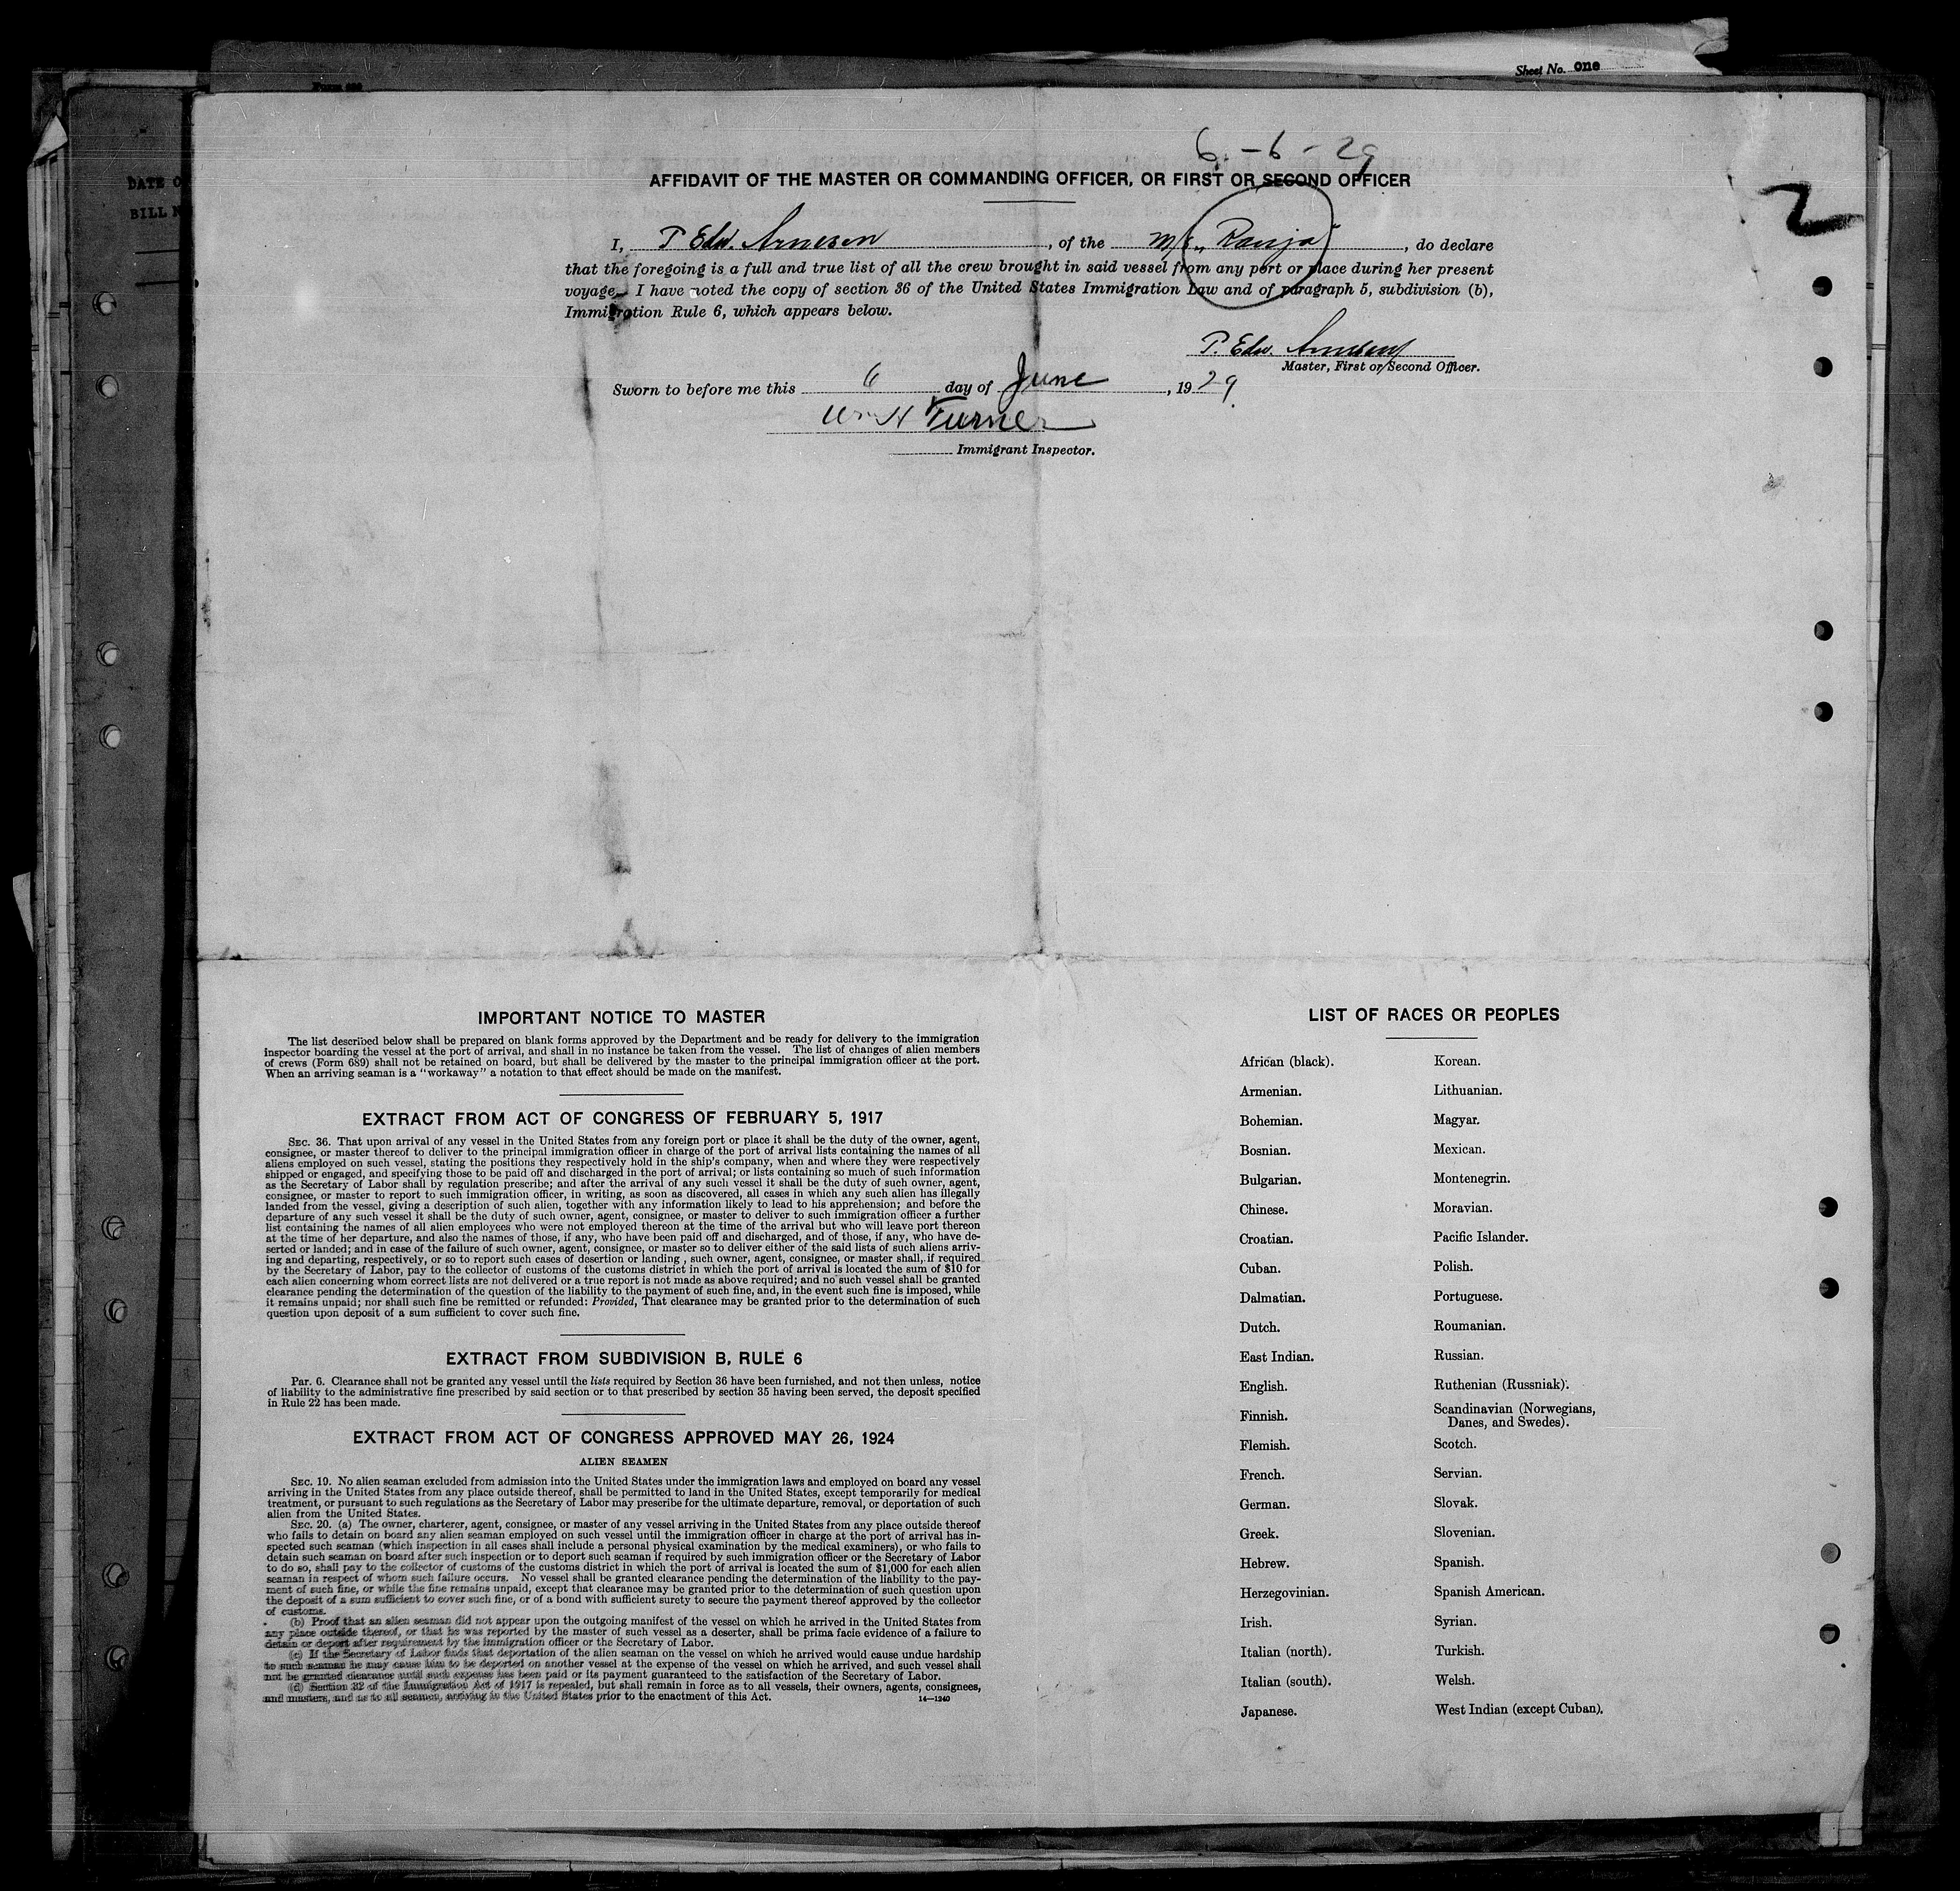 Sheet No. one
Form 689
DATE O
BILL N
6-6-29
2
AFFIDAVIT OF THE MASTER OR COMMANDING OFFICER, OR FIRST OR SECOND OFFICER
I, P Edw. Arnesen, of the M/S "Ranja", do declare
that the foregoing is a full and true list of all the crew brought in said vessel from any port or place during her present
voyage. I have noted the copy of section 36 of the United States Immigration Law and of paragraph 5, subdivision (b),
Immigration Rule 6, which appears below.
P. Edw. Arnesen
Master, First or Second Officer.
Sworn to before me this 6 day of June, 1929.
Wm H Turner
Immigrant Inspector.
IMPORTANT NOTICE TO MASTER
The list described below shall be prepared on blank forms approved by the Department and be ready for delivery to the immigration
inspector boarding the vessel at the port of arrival, and shall in no instance be taken from the vessel. The list of changes of alien members
of crews (Form 689) shall not be retained on board, but shall be delivered by the master to the principal immigration officer at the port.
When an arriving seaman is a "workaway" a notation to that effect should be made on the manifest.
EXTRACT FROM ACT OF CONGRESS OF FEBRUARY 5, 1917
SEC. 36. That upon arrival of any vessel in the United States from any foreign port or place it shall be the duty of the owner, agent,
consignee, or master thereof to deliver to the principal immigration officer in charge of the port of arrival lists containing the names of all
aliens employed on such vessel, stating the positions they respectively hold in the ship's company, when and where they were respectively
shipped or engaged, and specifying those to be paid off and discharged in the port of arrival; or lists containing so much of such information
as the Secretary of Labor shall by regulation prescribe; and after the arrival of any such vessel it shall be the duty of such owner, agent,
consignee, or master to report to such immigration officer, in writing, as soon as discovered, all cases in which any such alien has illegally
landed from the vessel, giving a description of such alien, together with any information likely to lead to his apprehension; and before the
departure of any such vessel it shall be the duty of such owner, agent, consignee, or master to deliver to such immigration officer a further
list containing the names of all alien employees who were not employed thereon at the time of the arrival but who will leave port thereon
at the time of her departure, and also the names of those, if any, who have been paid off and discharged, and of those, if any, who have de-
serted or landed; and in case of the failure of such owner, agent, consignee, or master so to deliver either of the said lists of such aliens arriv-
ing and departing, respectively, or so to report such cases of desertion or landing, such owner, agent, consignee, or master shall, if required
by the Secretary of Labor, pay to the collector of customs of the customs district in which the port of arrival is located the sum of $10 for
each alien concerning whom correct lists are not delivered or a true report is not made as above required; and no such vessel shall be granted
clearance pending the determination of the question of the liability to the payment of such fine, and, in the event such fine is imposed, while
it remains unpaid; nor shall such fine be remitted or refunded: Provided, That clearance may be granted prior to the determination of such
question upon deposit of a sum sufficient to cover such fine.
EXTRACT FROM SUBDIVISION B, RULE 6
PAR. 6. Clearance shall not be granted any vessel until the lists required by Section 36 have been furnished, and not then unless, notice
of liability to the administrative fine prescribed by said section or to that prescribed by section 35 having been served, the deposit specified
in Rule 22 has been made.
EXTRACT FROM ACT OF CONGRESS APPROVED MAY 26, 1924
ALIEN SEAMEN
SEC. 19. No alien seaman excluded from admission into the United States under the immigration laws and employed on board any vessel
arriving in the United States from any place outside thereof, shall be permitted to land in the United States, except temporarily for medical
treatment, or pursuant to such regulations as the Secretary of Labor may prescribe for the ultimate departure, removal, or deportation of such
alien from the United States.
SEC. 20. (a) The owner, charterer, agent, consignee, or master of any vessel arriving in the United States from any place outside thereof
who fails to detain on board any alien seaman employed on such vessel until the immigration officer in charge at the port of arrival has in-
spected such seaman (which inspection in all cases shall include a personal physical examination by the medical examiners), or who fails to
detain such seaman on board after such inspection or to deport such seaman if required by such immigration officer or the Secretary of Labor
to do so, shall pay to the collector of customs of the customs district in which the port of arrival is located the sum of $1,000 for each alien
seaman in respect of whom such failure occurs. No vessel shall be granted clearance pending the determination of the liability to the pay-
ment of such fine, or while the fine remains unpaid, except that clearance may be granted prior to the determination of such question upon
the deposit of a sum sufficient to cover such fine, or of a bond with sufficient surety to secure the payment thereof approved by the collector
of customs.
(b) Proof that an alien seaman did not appear upon the outgoing manifest of the vessel on which he arrived in the United States from
any place outside thereof, or that he was reported by the master of such vessel as a deserter, shall be prima facie evidence of a failure to
detain or deport after requirement by the immigration officer or the Secretary of Labor.
(c) If the Secretary of Labor finds that deportation of the alien seaman on the vessel on which he arrived would cause undue hardship
to such seaman he may cause him to be deported on another vessel at the expense of the vessel on which he arrived, and such vessel shall
not be granted clearance until such expense has been paid or its payment guaranteed to the satisfaction of the Secretary of Labor.
(d) Section 32 of the Immigration Act of 1917 is repealed, but shall remain in force as to all vessels, their owners, agents, consignees,
and masters, and as to all seamen, arriving in the United States prior to the enactment of this Act.
14—1240
LIST OF RACES OR PEOPLES
African (black).
Armenian.
Bohemian.
Bosnian.
Bulgarian.
Chinese.
Croatian.
Cuban.
Dalmatian.
Dutch.
East Indian.
English.
Finnish.
Flemish.
French.
German.
Greek.
Hebrew.
Herzegovinian.
Irish.
Italian (north).
Italian (south).
Japanese.
Korean.
Lithuanian.
Magyar.
Mexican.
Montenegrin.
Moravian.
Pacific Islander.
Polish.
Portuguese.
Roumanian.
Russian.
Ruthenian (Russniak).
Scandinavian (Norwegians,
Danes, and Swedes).
Scotch.
Servian.
Slovak.
Slovenian.
Spanish.
Spanish American.
Syrian.
Turkish.
Welsh.
West Indian (except Cuban).